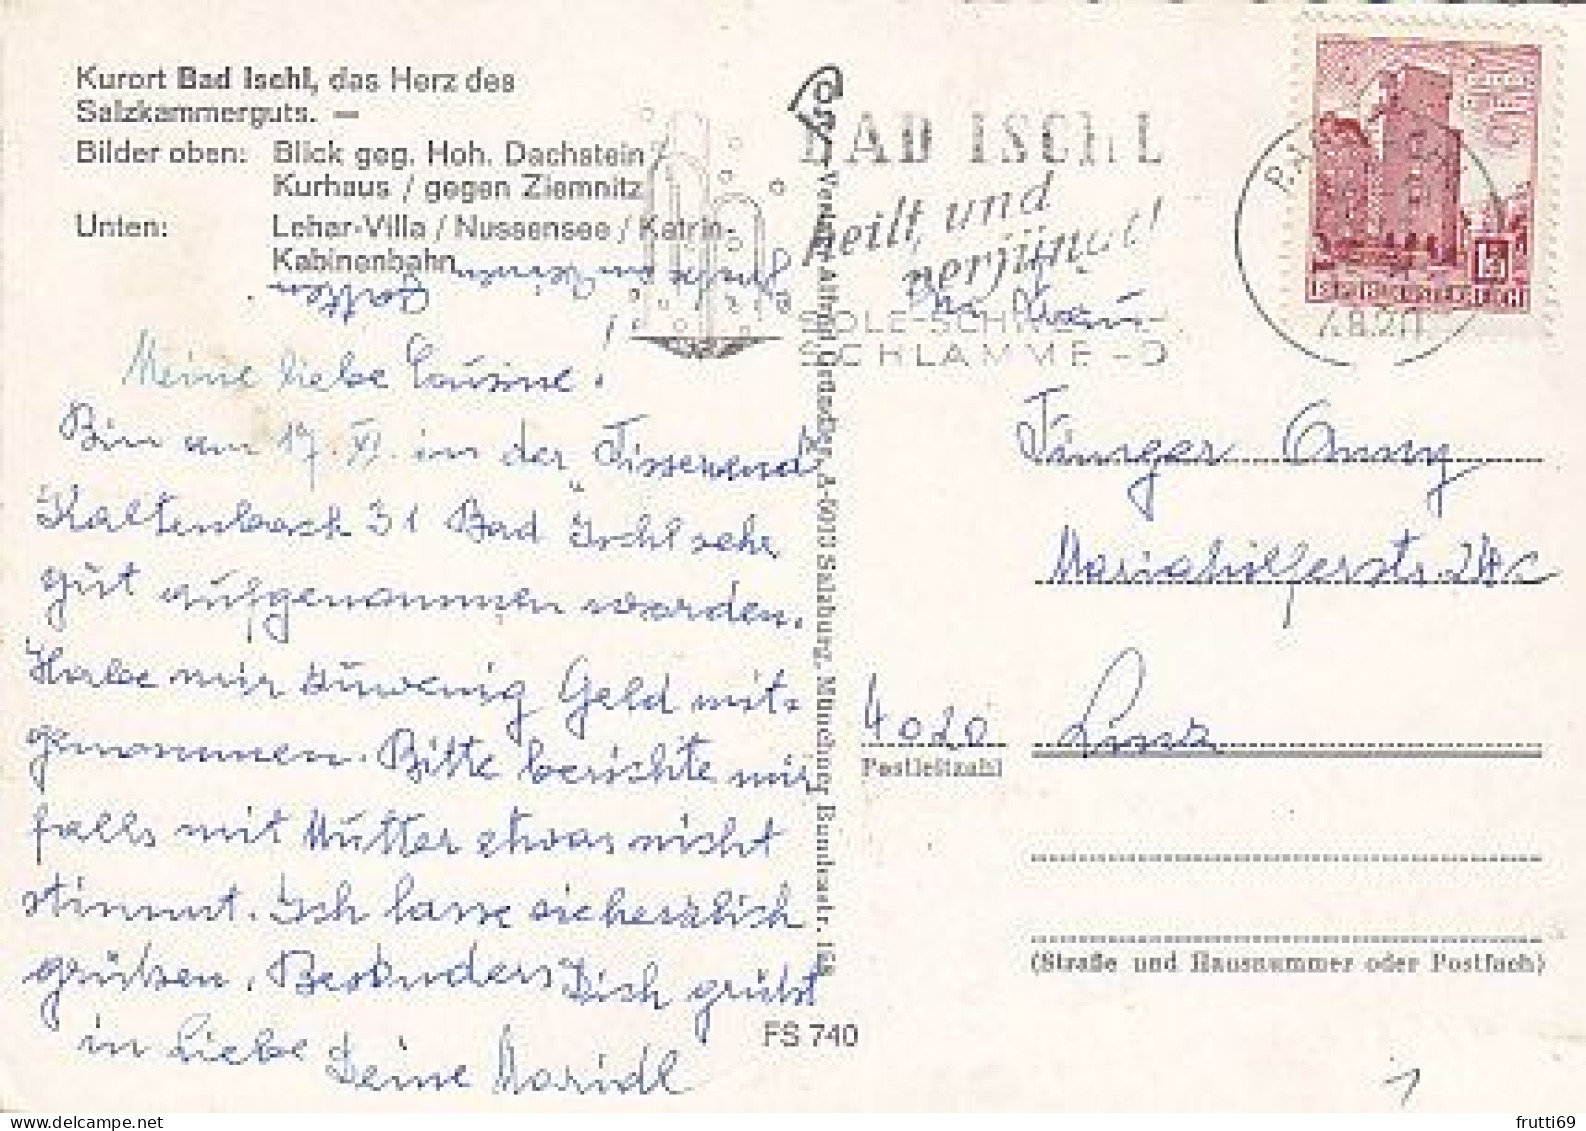 Kurort Bad Ischl, das Herz des
Salzkammerguts. —
Bilder oben: Blick geg. Hoh. Dachstein /
Kurhaus / gegen Ziemnitz
Unten: Lehar-Villa / Nussensee / Katrin-
Kabinenbahn
Meine liebe Cousine.
Bin am 17. XI. in der „Tisserand"
Kaltenbach 31 Bad Ischl sehr
gut aufgenommen worden.
Habe mir zuwenig Geld mit-
genommen. Bitte berichte mir
falls mit Mutter etwas nicht
stimmt. Ich lasse sie herzlich
grüßen. Besonders Dich grüßt
in Liebe Deine Maridl
FS 740
Verlag Alfred Gründler, A-5013 Salzburg, Münchner Bundesstr. 158
BAD ISCHL
heilt, und
verjüngt!
SOLE-SCHW
SCHLAMME
4820
An Frau
Anny
Mariahilferstr. 24c
4020 Linz
Postleitzahl
(Straße und Hausnummer oder Postfach)
1
frutti69